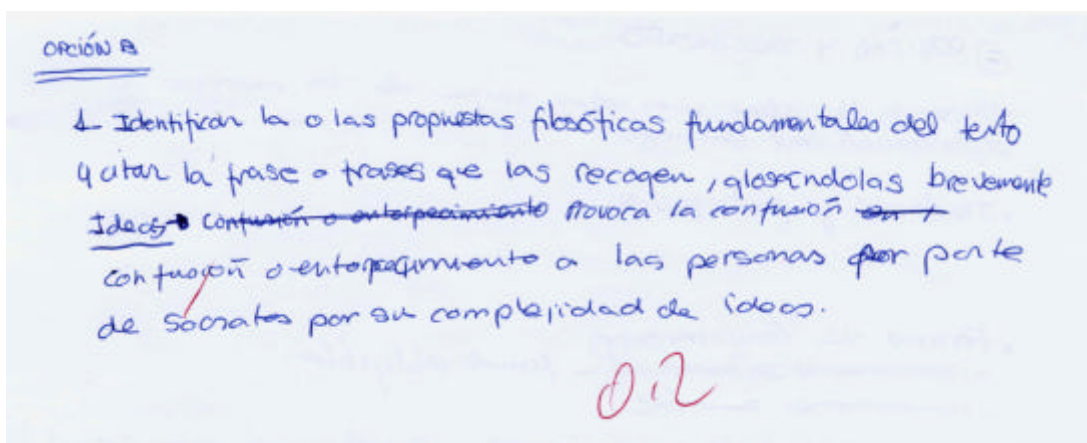 OPCIÓN B
1- Identifican la o las propuestas filosóficas fundamentales del texto
y citan la frase o frases que las recogen, glosándolas brevemente
Ideas Confusión o entorpecimiento Provoca la confusión en 1
confusión o entorpecimiento a las personas por parte
de Sócrates por su complejidad de ideas.
0.2